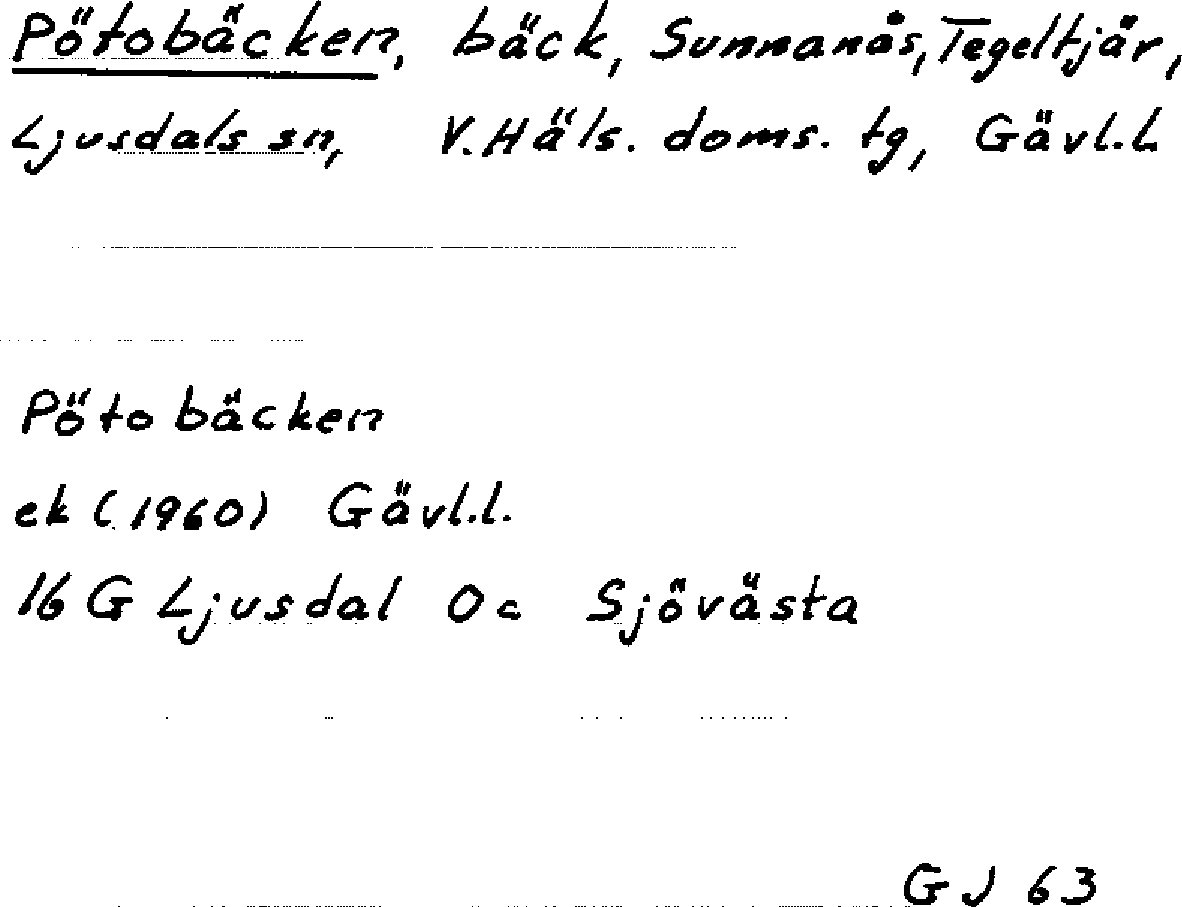 Pötobäcken, bäck, Sunnanås, Tegeltjär,
Ljusdals sn, V. Häls. doms. tg, Gävl.l.
Pötobäcken
ek (1960) Gävl.l.
16 G Ljusdal 0c Sjövästa
GJ 63